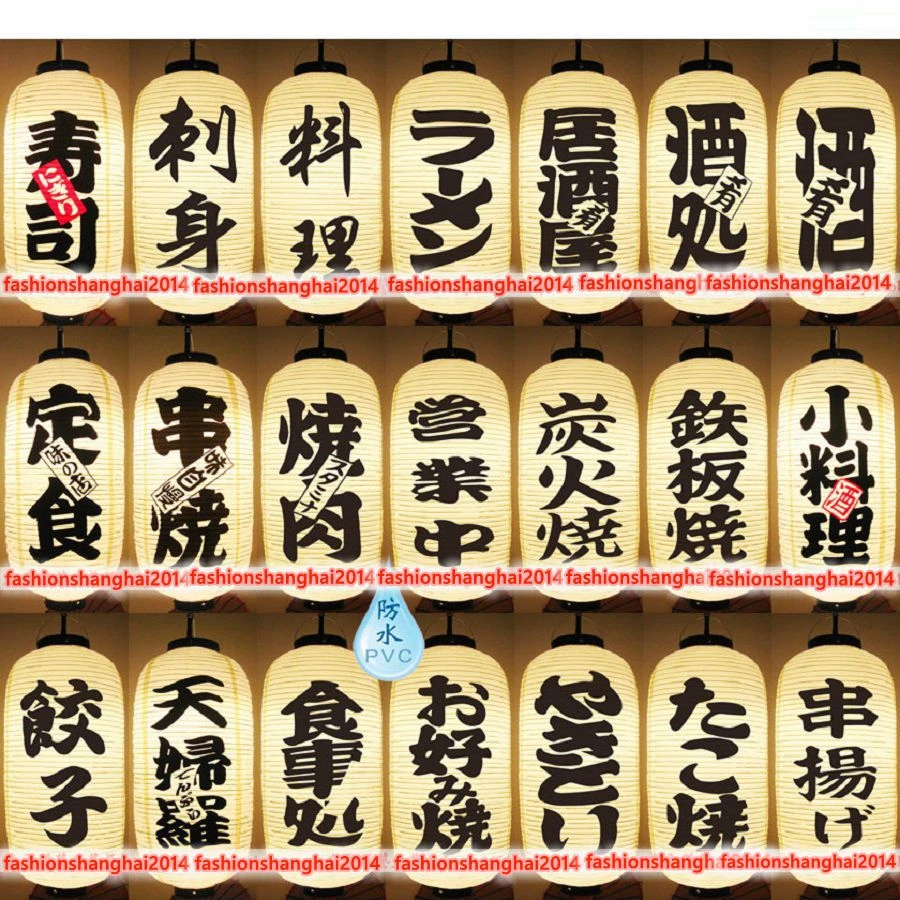 寿司
にぎり
刺身
料理
ラーメン
居酒屋
肴
酒処
肴
酒
肴
fashionshanghai2014 fashionshanghai2014 fashionshanghai2014 fashionshang fashionshanghai2014
定食
味の店
串焼
味自慢
焼肉
スタミナ
営業中
炭火焼
鉄板焼
小料理
酒
fashionshanghai2014 fashionshanghai2014 fashionshanghai2014 fashionshangha fashionshanghai2014
防水
PVC
餃子
天婦羅
てんぷら
食事処
お好み焼
やきとり
たこ焼
串揚げ
fashionshanghai2014 fashionshanghai2014 fashionshanghai2014 fashionshangh fashionshanghai2014